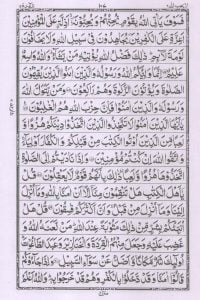 فَسَوْفَ يَأْتِي اللّٰهُ بِقَوْمٍ يُّحِبُّهُمْ وَيُحِبُّوْنَهٗٓ اَذِلَّةٍ عَلَى الْمُؤْمِنِيْنَ
اَعِزَّةٍ عَلَى الْكٰفِرِيْنَ يُجَاهِدُوْنَ فِيْ سَبِيْلِ اللّٰهِ وَلَا يَخَافُوْنَ
لَوْمَةَ لَآئِمٍ ذٰلِكَ فَضْلُ اللّٰهِ يُؤْتِيْهِ مَنْ يَّشَآءُ وَاللّٰهُ وَاسِعٌ
عَلِيْمٌ اِنَّمَا وَلِيُّكُمُ اللّٰهُ وَرَسُوْلُهٗ وَالَّذِيْنَ اٰمَنُوا الَّذِيْنَ يُقِيْمُوْنَ
الصَّلٰوةَ وَيُؤْتُوْنَ الزَّكٰوةَ وَهُمْ رٰكِعُوْنَ وَمَنْ يَّتَوَلَّ اللّٰهَ
وَرَسُوْلَهٗ وَالَّذِيْنَ اٰمَنُوْا فَاِنَّ حِزْبَ اللّٰهِ هُمُ الْغٰلِبُوْنَ يٰٓاَيُّهَا
الَّذِيْنَ اٰمَنُوْا لَا تَتَّخِذُوا الَّذِيْنَ اتَّخَذُوْا دِيْنَكُمْ هُزُوًا وَّ
لَعِبًا مِّنَ الَّذِيْنَ اُوْتُوا الْكِتٰبَ مِنْ قَبْلِكُمْ وَالْكُفَّارَ اَوْلِيَآءَ
وَاتَّقُوا اللّٰهَ اِنْ كُنْتُمْ مُّؤْمِنِيْنَ وَاِذَا نَادَيْتُمْ اِلَى الصَّلٰوةِ
اتَّخَذُوْهَا هُزُوًا وَّلَعِبًا ذٰلِكَ بِاَنَّهُمْ قَوْمٌ لَّا يَعْقِلُوْنَ قُلْ
يٰٓاَهْلَ الْكِتٰبِ هَلْ تَنْقِمُوْنَ مِنَّآ اِلَّآ اَنْ اٰمَنَّا بِاللّٰهِ وَمَآ اُنْزِلَ
اِلَيْنَا وَمَآ اُنْزِلَ مِنْ قَبْلُ وَاَنَّ اَكْثَرَكُمْ فٰسِقُوْنَ قُلْ هَلْ
اُنَبِّئُكُمْ بِشَرٍّ مِّنْ ذٰلِكَ مَثُوْبَةً عِنْدَ اللّٰهِ مَنْ لَّعَنَهُ اللّٰهُ وَ
غَضِبَ عَلَيْهِ وَجَعَلَ مِنْهُمُ الْقِرَدَةَ وَالْخَنَازِيْرَ وَعَبَدَ الطَّاغُوْتَ
اُولٰٓئِكَ شَرٌّ مَّكَانًا وَّاَضَلُّ عَنْ سَوَآءِ السَّبِيْلِ وَاِذَا جَآءُوْكُمْ
قَالُوْٓا اٰمَنَّا وَقَدْ دَّخَلُوْا بِالْكُفْرِ وَهُمْ قَدْ خَرَجُوْا بِهٖ وَاللّٰهُ اَعْلَمُ